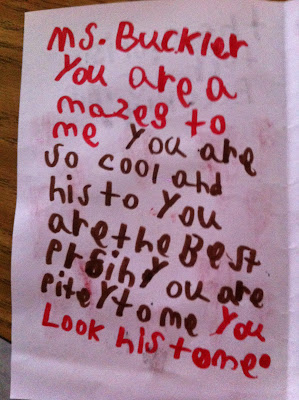 Ms. Buckler
You are a
mazes to
me You are
so cool and
his to You
are the Best
prsihy ou are
pitey to me You
Look his tome.